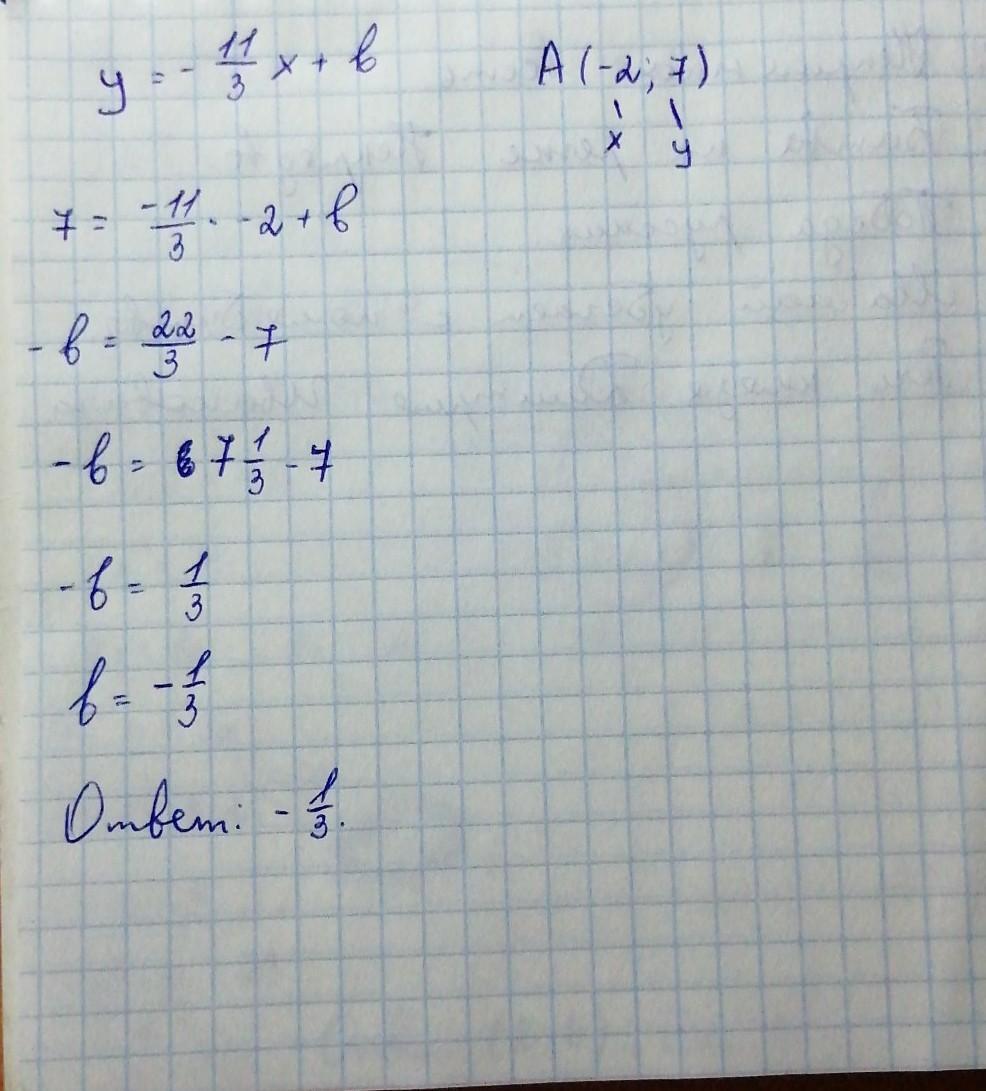 y = - 11/3 x + b A (-2; 7)
x y
7 = -11/3 · -2 + b
- b = 22/3 - 7
- b = 7 1/3 - 7
- b = 1/3
b = - 1/3
Ответ: - 1/3.